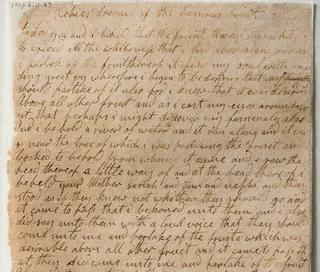 1 Nep 8:11-27
of the
and I beheld that the fruit thereof was white
to exceed all the whiteness that I had ever seen and as
I partook of the fruit thereof it filld my soul with excee
ding great joy wherefore I began to be desirous that my
should partake of it also for I knew that it was desirous
above all other fruit and as I cast my eyes around about
that perhaps I might discover my family also
I beheld a river of water and it ran along and it wa
s near the tree of which I was partaking the fruit and I
looked to behold from whence it came and I saw the
head thereof a little way off and at the head thereof I
beheld your Mother sariah and sam and nephi and they
stood as if they knew not whether they should go and
it came to pass that I beckoned unto them and I also
did say unto them with a loud voice that they should
come unto me and partake of the fruite which was
desirable above all other fruit and it came to pass th
at they did come unto me and partake of the fruit